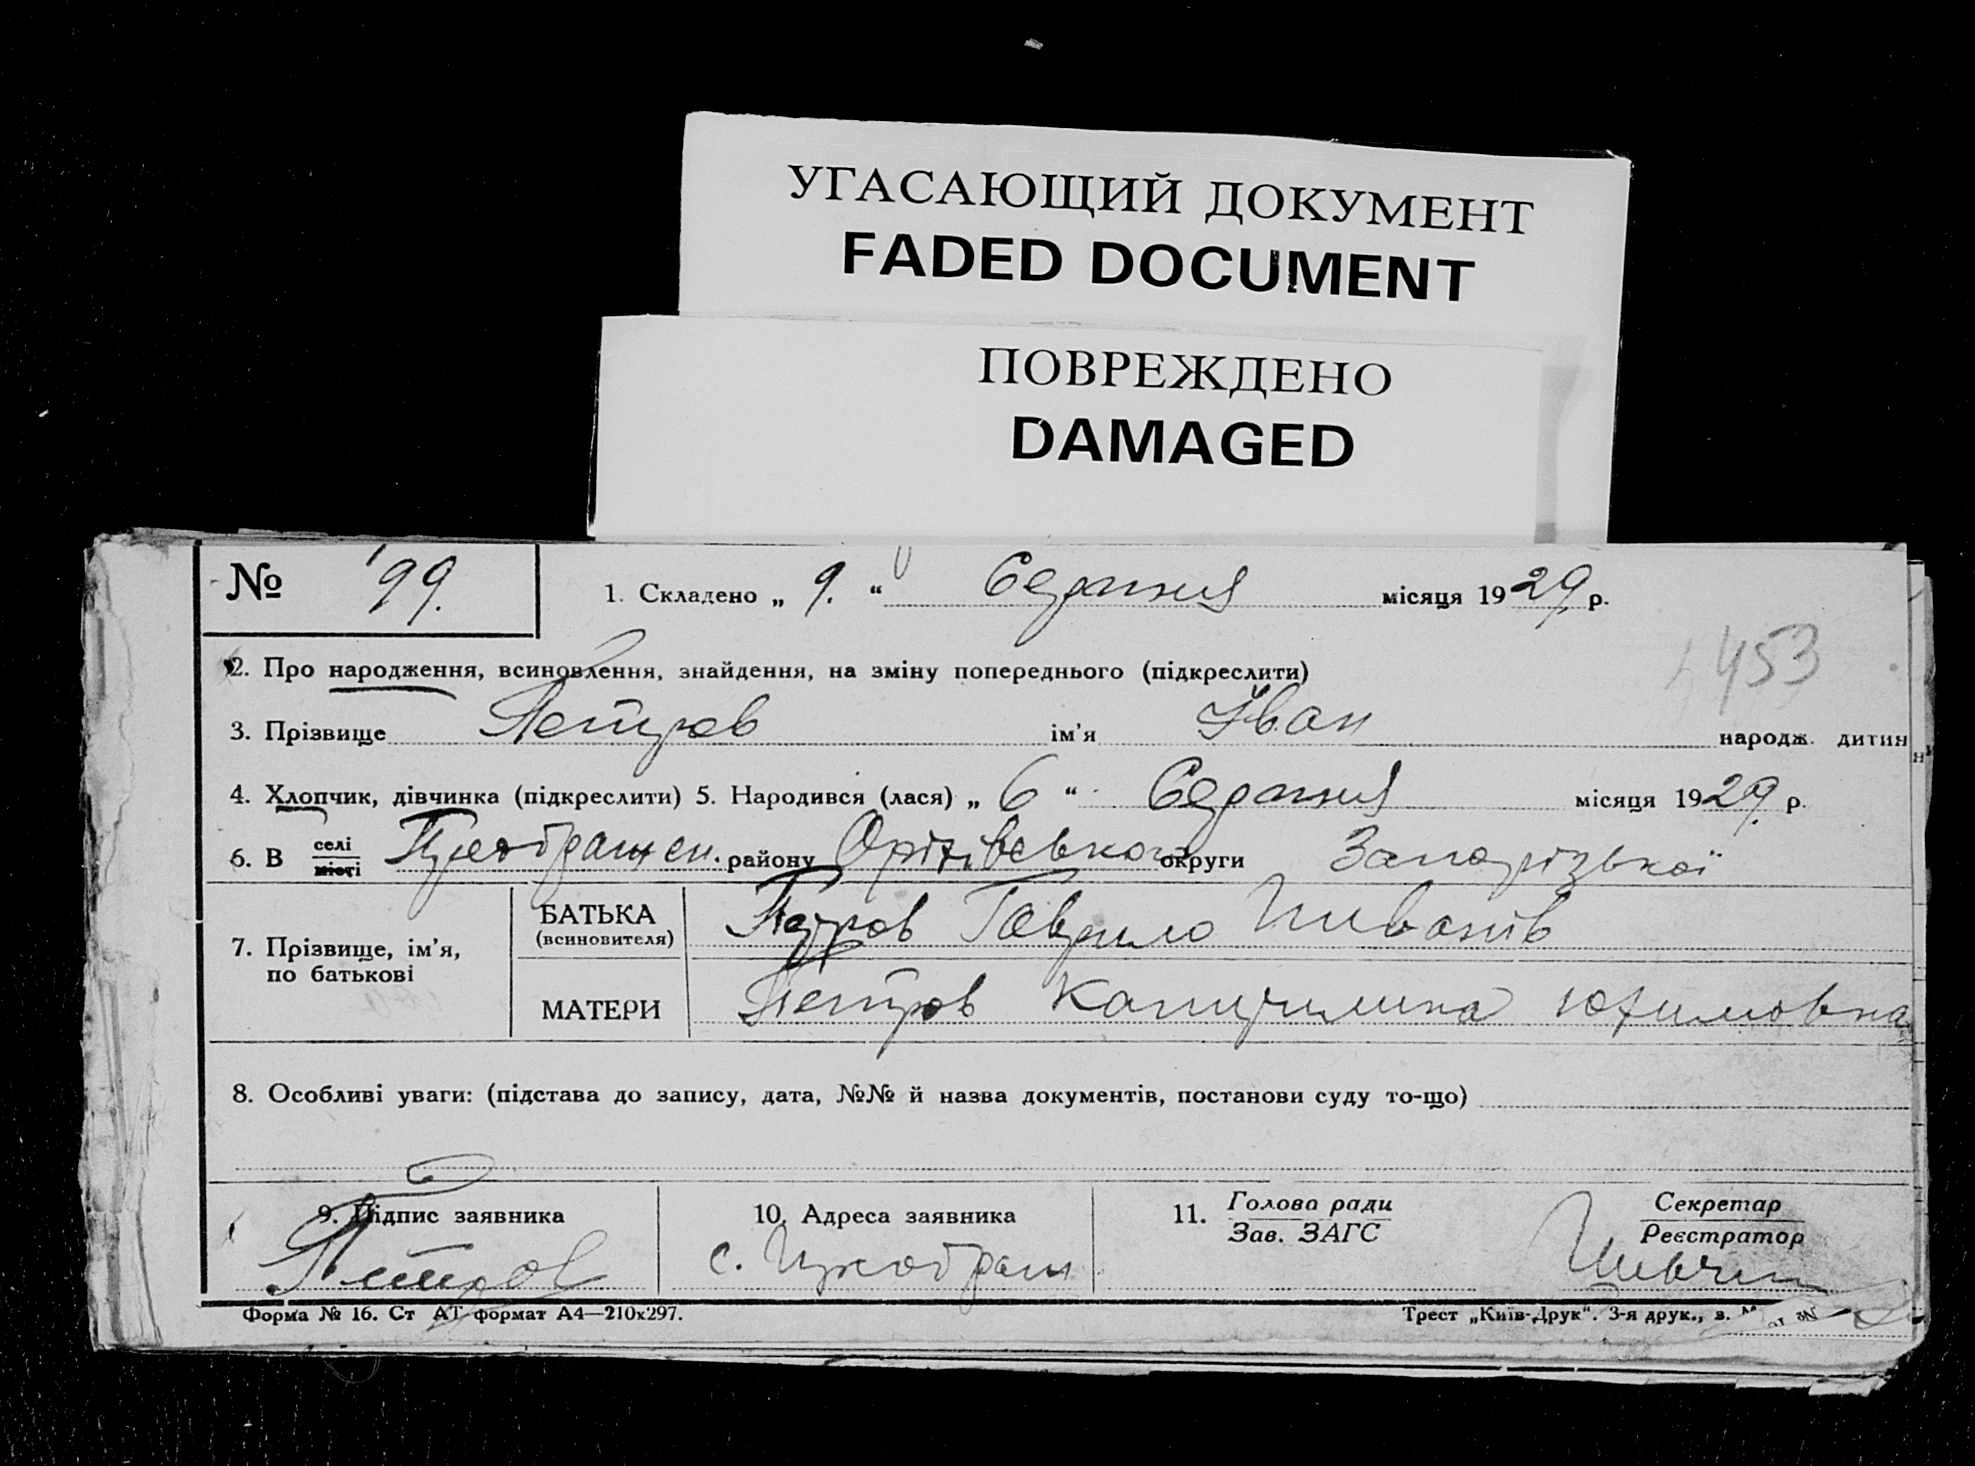 УГАСАЮЩИЙ ДОКУМЕНТ
FADED DOCUMENT
ПОВРЕЖДЕНО
DAMAGED
№ 99. 1. Складено „ 9. “ Серпня місяця 1929 р.
2. Про народження, всиновлення, знайдення, на зміну попереднього (підкреслити) 453
3. Прізвище Петров ім'я Іван народж. дитин
4. Хлопчик, дівчинка (підкреслити) 5. Народився (лася) „ 6 “ Серпня місяця 1929 р.
6. В селі місті Преображен. району Оріхівського округи Запорізької
7. Прізвище, ім'я, по батькові
БАТЬКА (всиновителя) Петров Гаврило
МАТЕРИ Петров Юхимовна
8. Особливі уваги: (підстава до запису, дата, №№ й назва документів, постанови суду то-що)
9. Підпис заявника 10. Адреса заявника 11. Голова ради Секретар
Зав. ЗАГС Реєстратор
Петров с. Преображ
Форма № 16. Ст АТ формат А4—210х297. Трест „Київ-Друк“. 3-я друк., з.